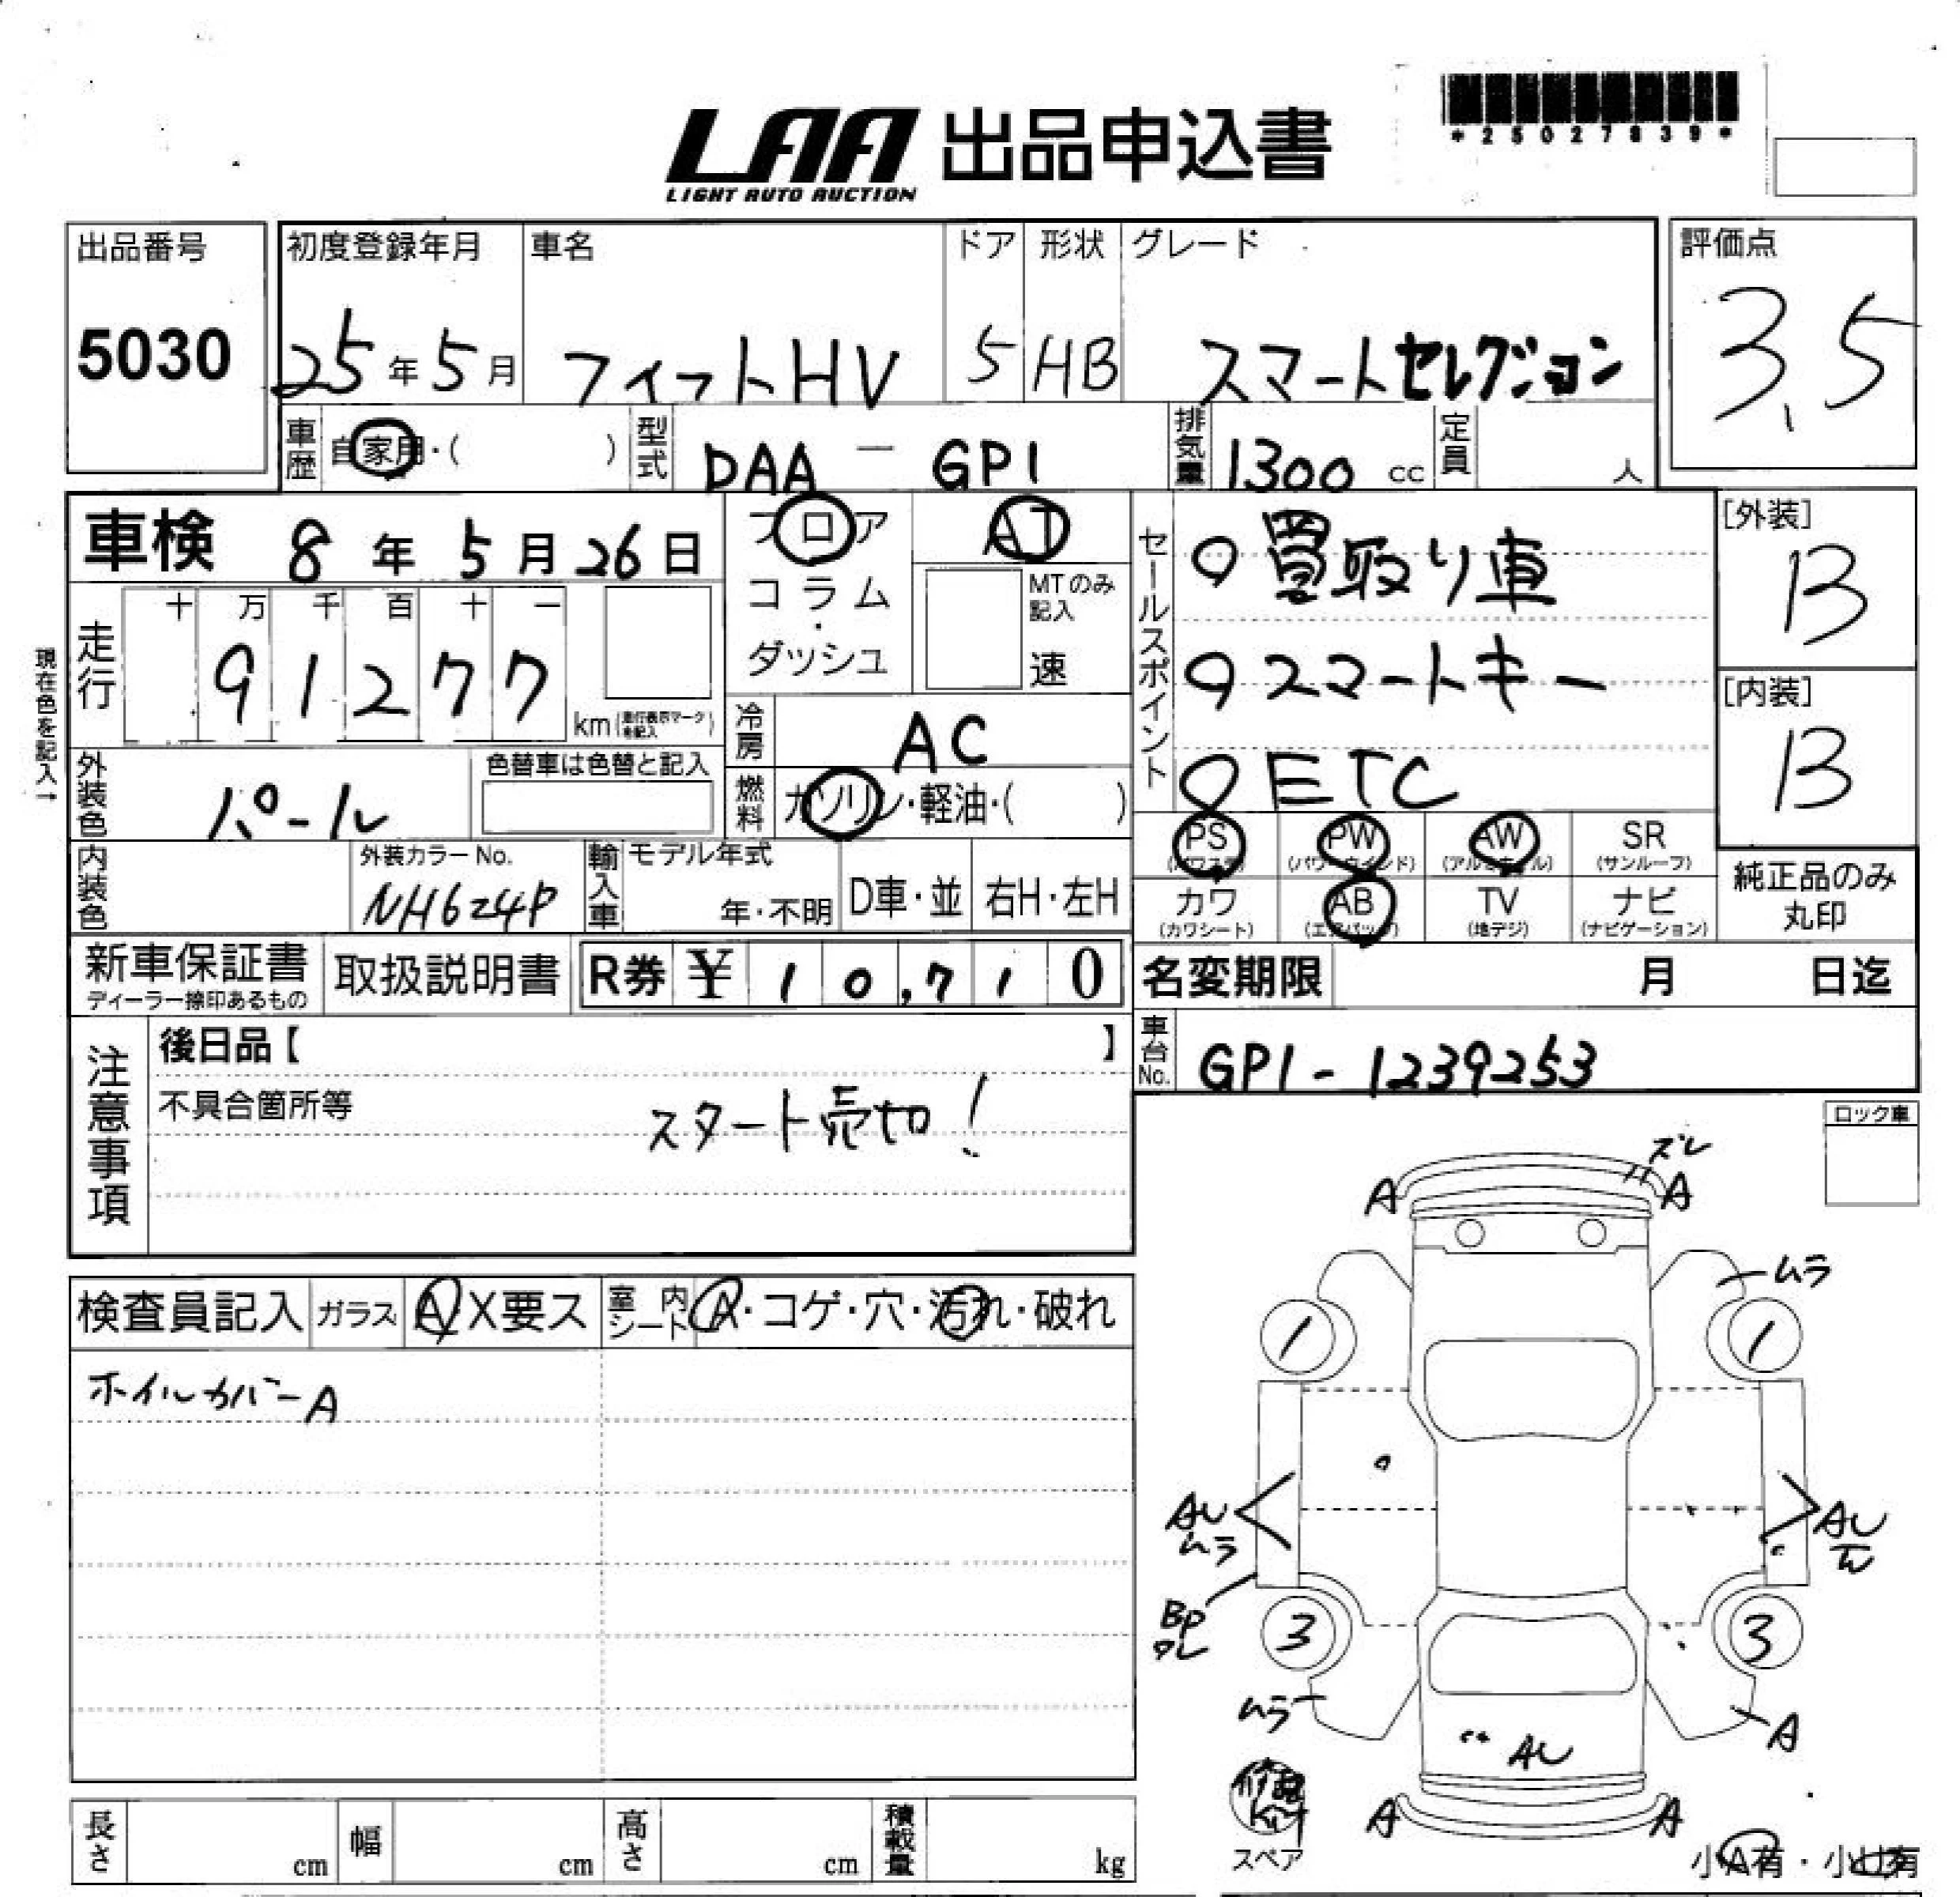 LAA 出品申込書
LIGHT AUTO AUCTION
*25027839*
出品番号
5030
初度登録年月
25年5月
車名
フィットHV
ドア
5
形状
HB
グレード
スマートセレクション
評価点
3.5
車歴
自家用・( )
型式
DAA - GP1
排気量
1300 cc
定員
人
車検 8年5月26日
フロア
コラム
・
ダッシュ
AT
MTのみ記入
速
走行
十 万 千 百 十 一
91277
km (走行表示マークを記入)
現在色を記入→
冷房
AC
外装色
パール
色替車は色替と記入
燃料
ガソリン・軽油・( )
セールスポイント
買取り車
スマートキー
ETC
[外装]
B
[内装]
B
PS
(パワステ)
PW
(パワーウインド)
AW
(アルミホイル)
SR
(サンルーフ)
カワ
(カワシート)
AB
(エアバッグ)
TV
(地デジ)
ナビ
(ナビゲーション)
純正品のみ
丸印
内装色
外装カラーNo.
NH624P
輸入車
モデル年式
年・不明
D車・並
右H・左H
新車保証書
ディーラー捺印あるもの
取扱説明書
R券 ¥10,710
名変期限 月 日迄
車台No.
GP1-1239253
注意事項
後日品【 】
不具合箇所等
スタート売切!
ロック車
検査員記入
ガラス
A X要ス
室内シート
A・コゲ・穴・汚れ・破れ
ホイルカバーA
ズレ
A
A
ムラ
1
1
AU
ムラ
AU
BP
3
3
ムラ
A
AU
A
A
スペア
小A有・小U有
長さ
cm
幅
cm
高さ
cm
積載量
kg